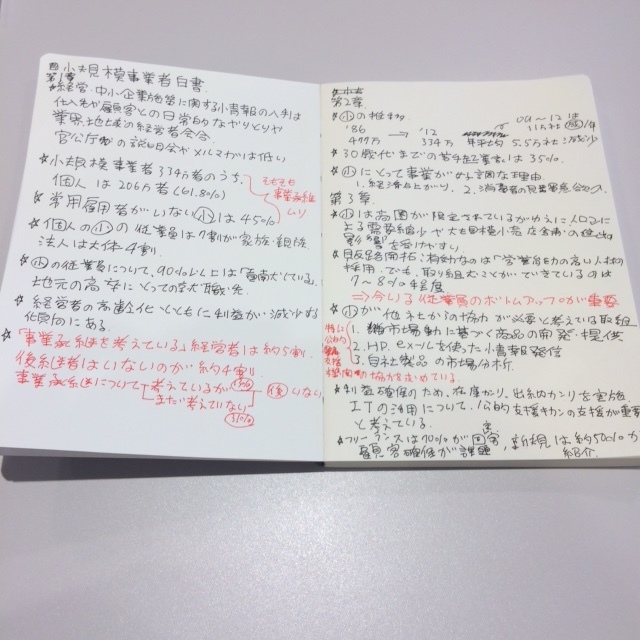 小規模事業者白書
第1章
☆経営・中小企業施策に関する情報の入手は
仕入先や顧客との日常的なやりとりや
業界・地域の経営者会合。
官公庁の説明会やメルマガは低い
☆小規模事業者334万者のうち、
個人は206万者(61.8%)
そもそも
事業承継
ムリ
☆常用雇用者がいない小は45%
☆個人の小の従業員は7割が家族・親族
法人は大体4割。
☆小の従業員について、90%以上は
地元の高卒にとっての就職先
☆経営者の高齢化とともに利益が減少する
傾向にある。
☆「事業承継を考えている」経営者は約5割。
後継者はいないのが約4割
事業承継について考えているが
後 いない
まだ考えていない
第2章
☆小の推移
'86 '12
477万 → 334万 年平均5.5万者減少
09〜12は
☆30歳代までの若手起業者は35%
☆小にとって事業が好調な理由
第3章
☆小は商圏が限定されているがゆえに人口に
よる需要縮小や大規模小売店舗の進出
影響を受けやすい
☆販路開拓に有効なのは「営業能力の高い人材
採用」でも、取り組むことができているのは
7〜8%程度
⇒今いる従業員のボトムアップが重要
☆小が他社からの協力が必要と考えている取組
1. 市場動向に基づく商品の開発・提供
2. HP、eメールを使った情報発信
3. 自社製品の市場分析
協力を求めている。
☆利益確保のため、在庫管理、出納管理を実施
ITの活用について、公的支援キカンの支援が重要
と考えている。
☆フリーランスは70%が固定客、新規は約50%が
顧客確保が課題 紹介